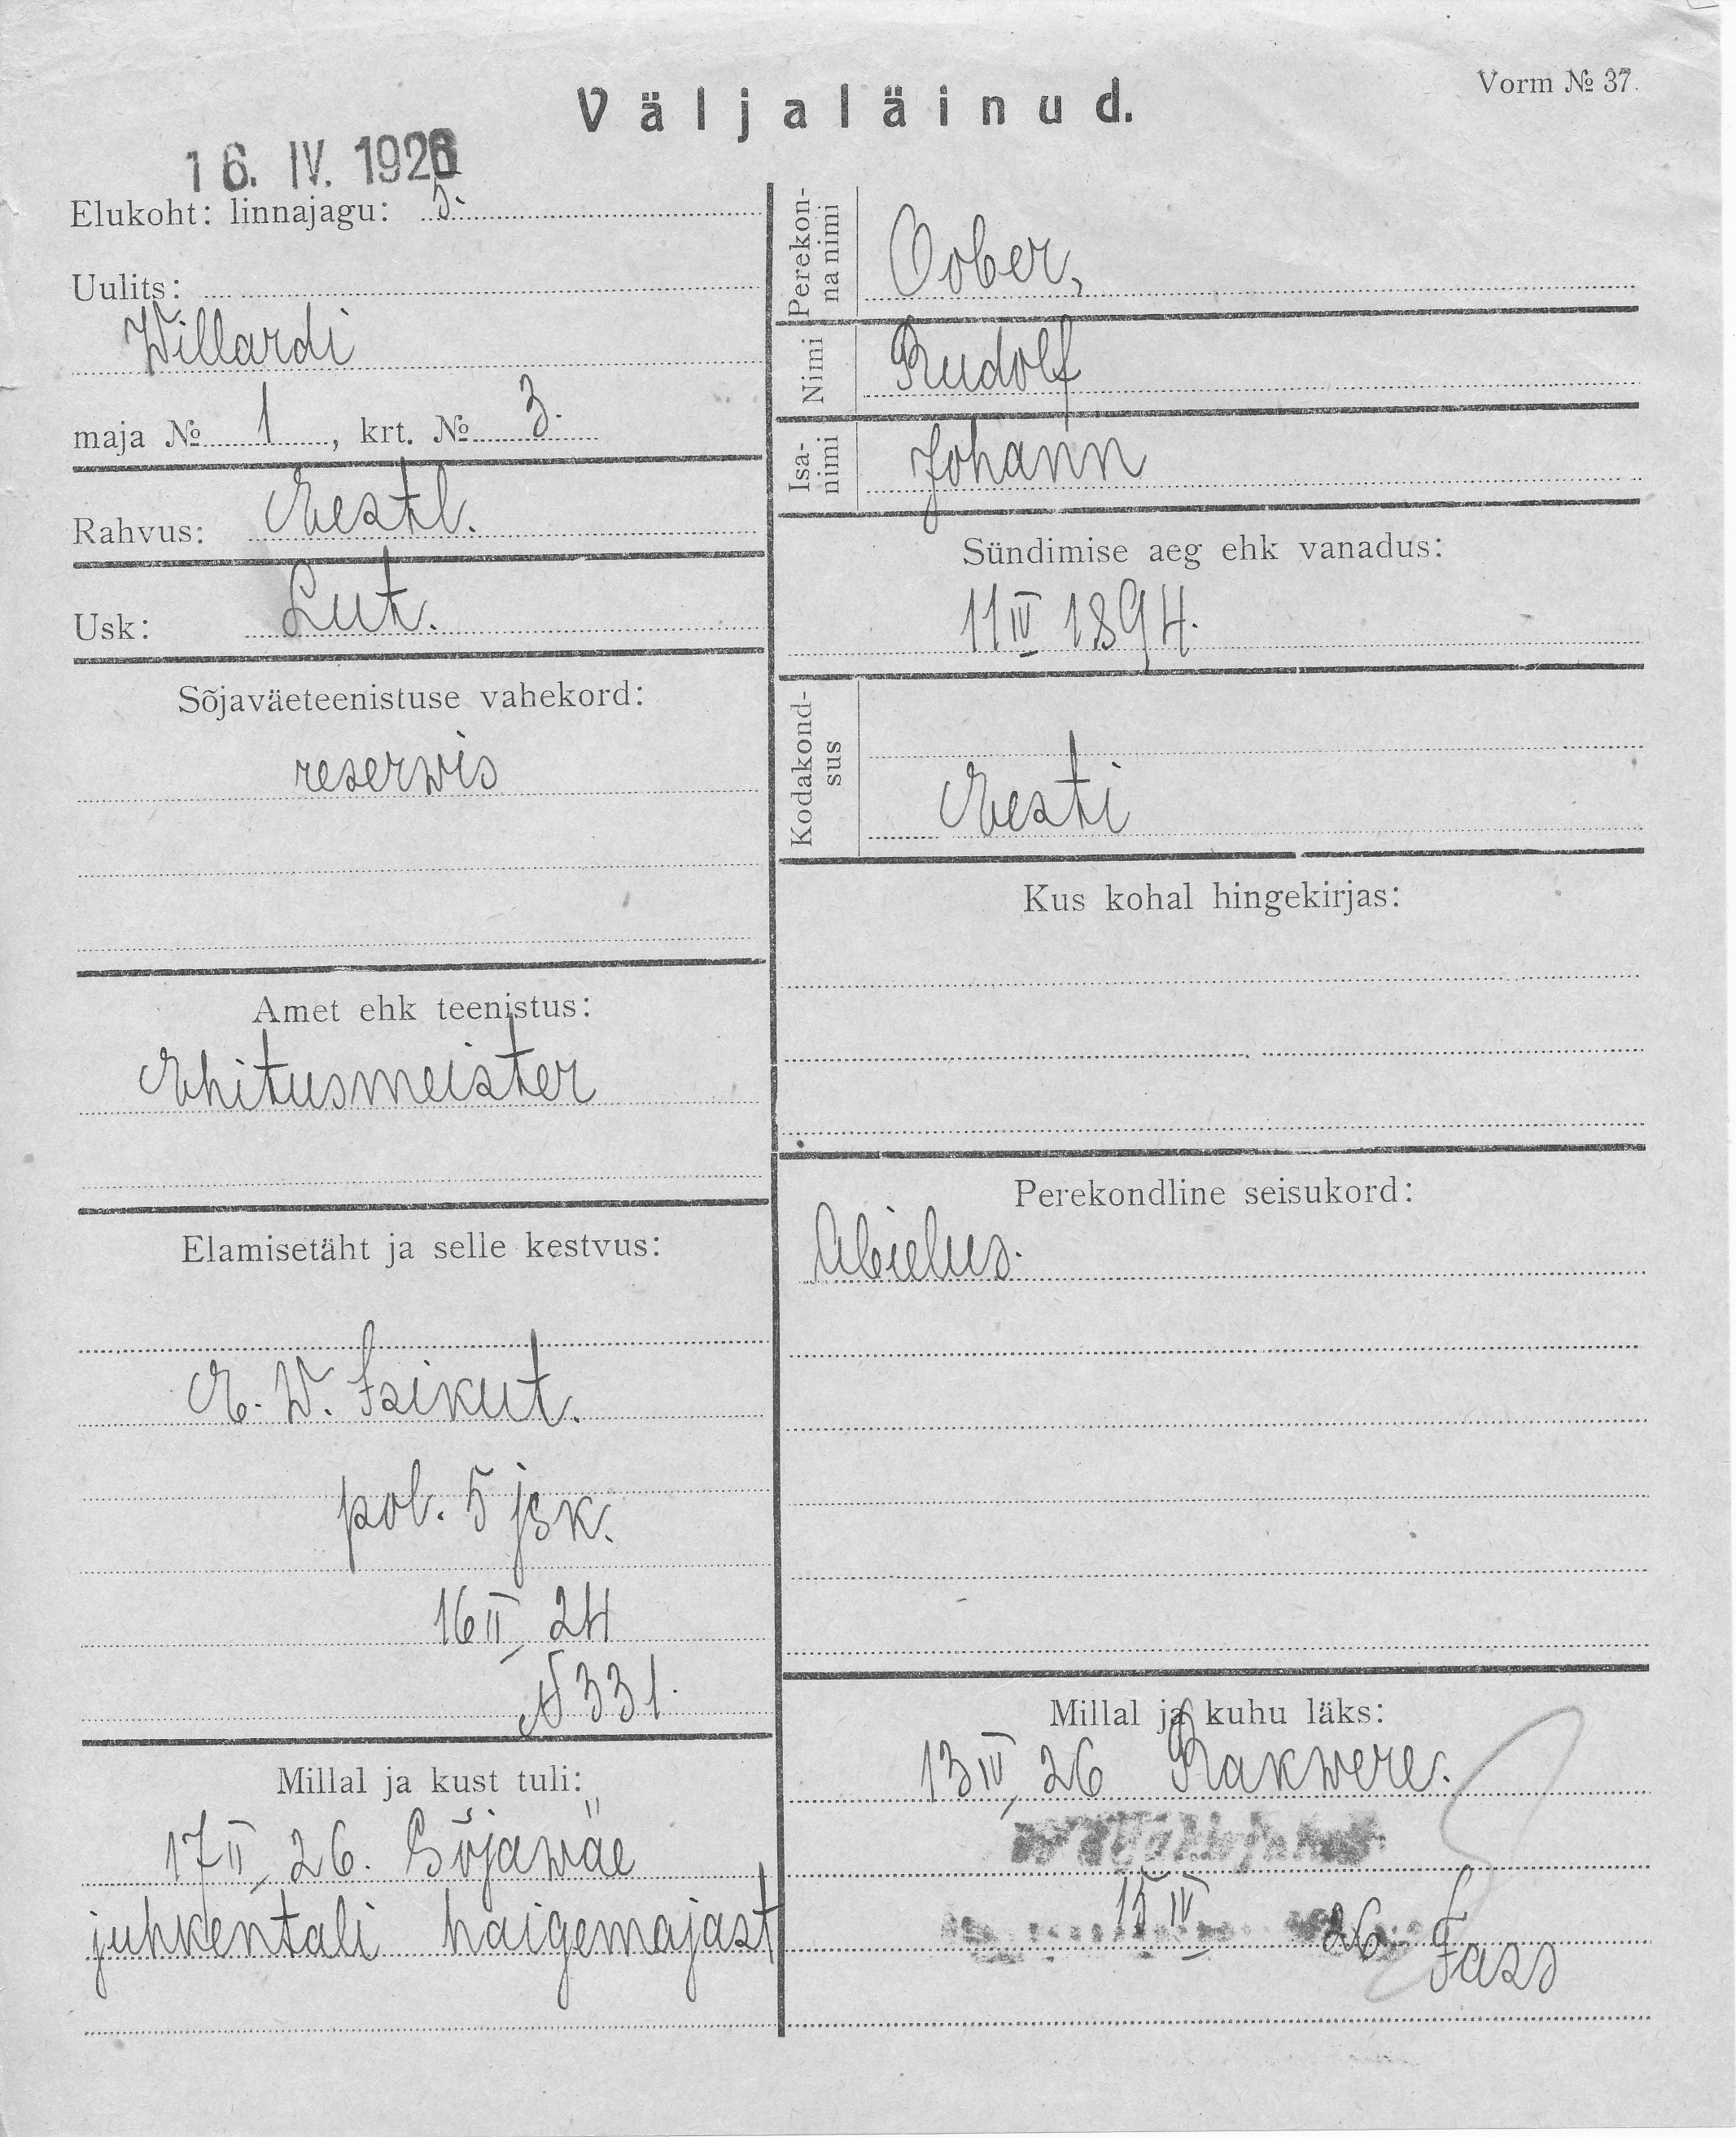 Vorm № 37.
Väljaläinud.
16. IV. 1926
Elukoht: linnajagu: 5.
Uulits:
Willardi
maja № 1, krt. № 3.
Rahvus: Eestl.
Usk: Lut.
Sõjaväeteenistuse vahekord:
reserwis
Amet ehk teenistus:
Ehitusmeister
Elamisetäht ja selle kestvus:
E. W. Isikut.
pol. 5 jsk.
16 II 24
N 331.
Millal ja kust tuli:
17 II 26. Sõjawäe
juhkentali haigemajast
Perekon-
na nimi
Oober,
Nimi
Rudolf
Isa-
nimi
Johann
Sündimise aeg ehk vanadus:
11 IV 1894.
Kodakond-
sus
Eesti
Kus kohal hingekirjas:
Perekondline seisukord:
Abielus.
Millal ja kuhu läks:
13 IV 26 Rakwere.
15 IV 26 Fass